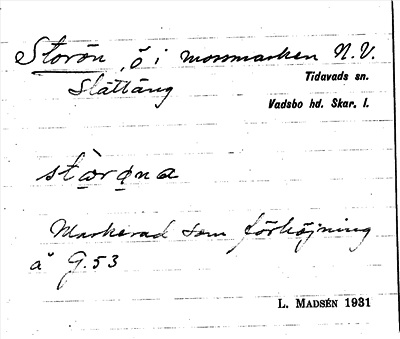 Storön, ö i mossmarken N.V.
Slättäng
Tidavads sn.
Vadsbo hd. Skar. l.
stọ̀rọna
Markerad som förhöjning
å G.53
L. MADSÉN 1931